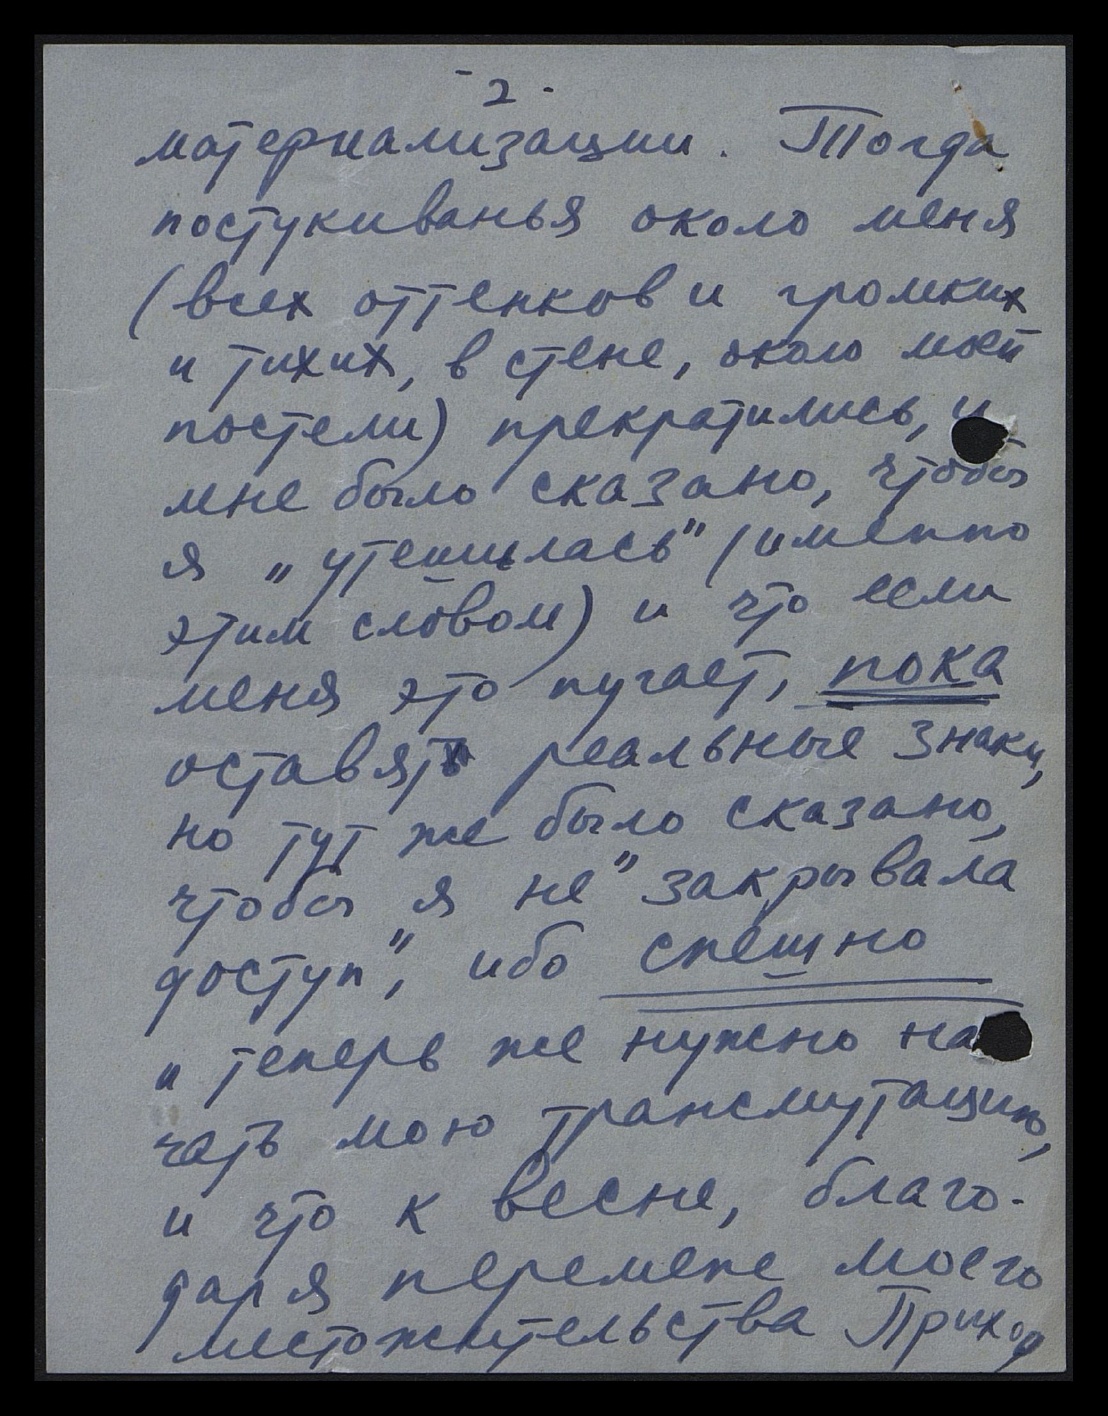 - 2 -
материализации. Тогда
постукиванья около меня
(всех оттенков и громких
и тихих, в стене, около моей
постели) прекратились, и
мне было сказано, чтобы
я „утешилась" (именно
этим словом) и что если
меня это пугает, пока
оставят реальные знаки,
но тут же было сказано,
чтобы я не "закрывала
доступ", ибо спешно
и теперь же нужно на
чать мою трансмутацию,
и что к весне, благо-
даря перемене моего
местожительства Приход